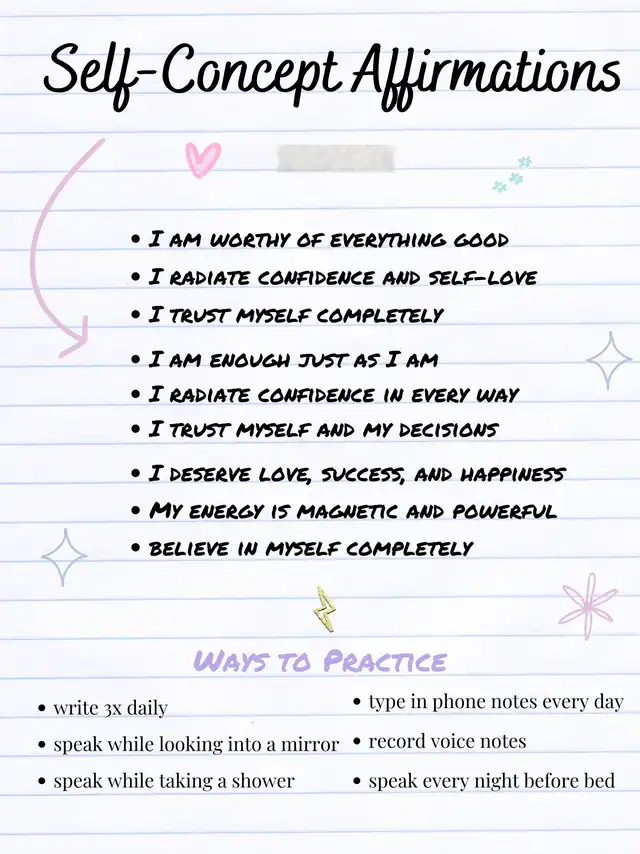 Self-Concept Affirmations
• I AM WORTHY OF EVERYTHING GOOD
• I RADIATE CONFIDENCE AND SELF-LOVE
• I TRUST MYSELF COMPLETELY
• I AM ENOUGH JUST AS I AM
• I RADIATE CONFIDENCE IN EVERY WAY
• I TRUST MYSELF AND MY DECISIONS
• I DESERVE LOVE, SUCCESS, AND HAPPINESS
• MY ENERGY IS MAGNETIC AND POWERFUL
• BELIEVE IN MYSELF COMPLETELY
WAYS TO PRACTICE
• write 3x daily
• speak while looking into a mirror
• speak while taking a shower
• type in phone notes every day
• record voice notes
• speak every night before bed